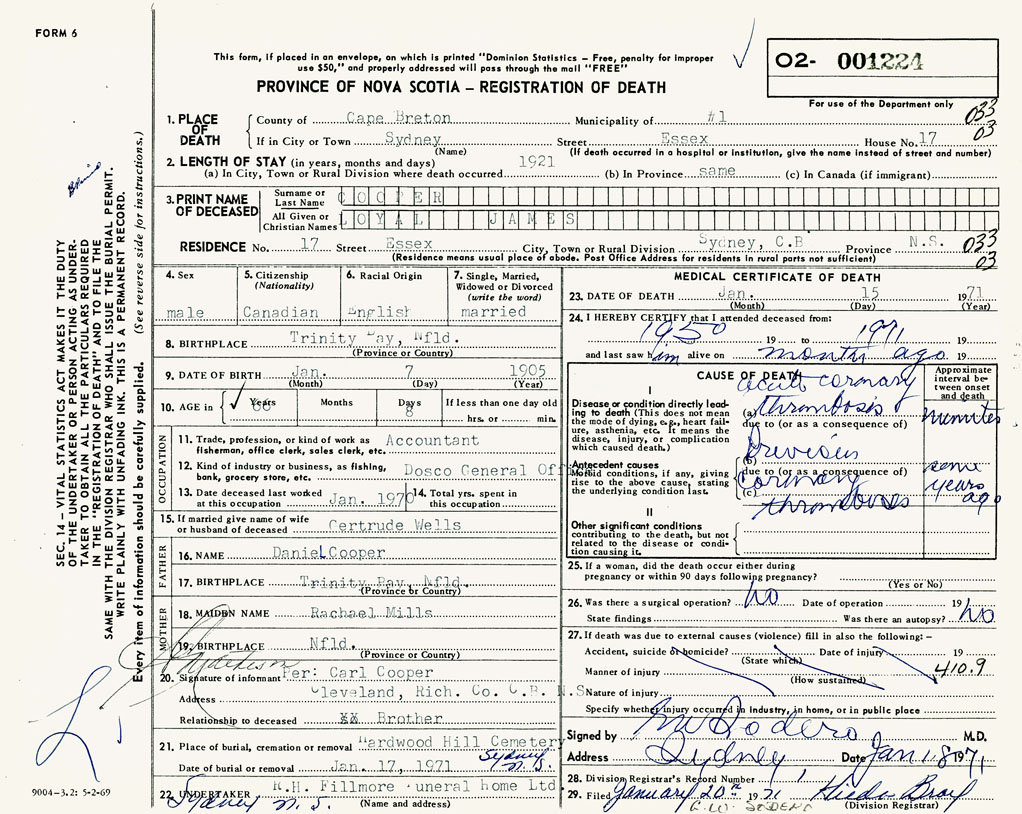 FORM 6
This form, if placed in an envelope, on which is printed "Dominion Statistics – Free, penalty for improper
use $50," and properly addressed will pass through the mail "FREE"
O2- 001224
For use of the Department only
PROVINCE OF NOVA SCOTIA – REGISTRATION OF DEATH
1. PLACE OF DEATH
County of Cape Breton Municipality of #1 033
If in City or Town Sydney Street Essex House No. 17 03
(Name) (If death occurred in a hospital or institution, give the name instead of street and number)
2. LENGTH OF STAY (in years, months and days) 1921
(a) In City, Town or Rural Division where death occurred (b) In Province same (c) In Canada (if immigrant)
3. PRINT NAME OF DECEASED
Surname or Last Name COOPER
All Given or Christian Names LOYAL JAMES
RESIDENCE No. 17 Street Essex City, Town or Rural Division Sydney, C.B Province N.S. 033
(Residence means usual place of abode. Post Office Address for residents in rural parts not sufficient) 03
4. Sex
male
5. Citizenship
(Nationality)
Canadian
6. Racial Origin
English
7. Single, Married,
Widowed or Divorced
(write the word)
married
8. BIRTHPLACE Trinity Bay, Nfld.
(Province or Country)
9. DATE OF BIRTH Jan. 7 1905
(Month) (Day) (Year)
10. AGE in Years 66 Months Days 8 If less than one day old
hrs. or min.
OCCUPATION
11. Trade, profession, or kind of work as Accountant
fisherman, office clerk, sales clerk, etc.
12. Kind of industry or business, as fishing, Dosco General Office
bank, grocery store, etc.
13. Date deceased last worked
at this occupation Jan. 1970
14. Total yrs. spent in
this occupation
15. If married give name of wife
or husband of deceased Gertrude Wells
FATHER
16. NAME Daniel Cooper
17. BIRTHPLACE Trinity Bay, Nfld.
(Province or Country)
MOTHER
18. MAIDEN NAME Rachael Mills
19. BIRTHPLACE Nfld.
(Province or Country)
20. Signature of informant Per: Carl Cooper
Address Cleveland, Rich. Co. C.B. N.S
Relationship to deceased XX Brother
21. Place of burial, cremation or removal Hardwood Hill Cemetery
Sydney N.S.
Date of burial or removal Jan. 17, 1971
22. UNDERTAKER R.H. Fillmore Funeral home Ltd
Sydney N.S. (Name and address)
MEDICAL CERTIFICATE OF DEATH
23. DATE OF DEATH Jan. 15 1971
(Month) (Day) (Year)
24. I HEREBY CERTIFY that I attended deceased from:
1950 19 to 1971 19
and last saw him alive on months ago 19
CAUSE OF DEATH
Approximate interval between onset and death
I
Disease or condition directly leading to death (This does not mean the mode of dying, e.g., heart failure, asthenia, etc. It means the disease, injury, or complication which caused death.)
acute coronary
(a) thrombosis minutes
due to (or as a consequence of)
Antecedent causes
Morbid conditions, if any, giving rise to the above cause, stating the underlying condition last.
Previous
(b)
due to (or as a consequence of) some
coronary years
(c) ago
thromboses
II
Other significant conditions
contributing to the death, but not
related to the disease or condition causing it.
25. If a woman, did the death occur either during
pregnancy or within 90 days following pregnancy?
(Yes or No)
26. Was there a surgical operation? No Date of operation 19
State findings Was there an autopsy? No
27. If death was due to external causes (violence) fill in also the following: –
Accident, suicide or homicide? Date of injury 19
(State which)
Manner of injury 410.9
(How sustained)
Nature of injury
Specify whether injury occurred in industry, in home, or in public place
Signed by M.D.
Address Sydney Date Jan 18 1971
28. Division Registrar's Record Number
29. Filed January 20th 1971
(Division Registrar)
SEC. 14 – VITAL STATISTICS ACT MAKES IT THE DUTY
OF THE UNDERTAKER OR PERSON ACTING AS UNDER-
TAKER TO OBTAIN ALL THE PARTICULARS REQUIRED
IN THE "REGISTRATION OF DEATH" AND TO FILE THE
SAME WITH THE DIVISION REGISTRAR WHO SHALL ISSUE THE BURIAL PERMIT.
WRITE PLAINLY WITH UNFADING INK. THIS IS A PERMANENT RECORD.
Every item of information should be carefully supplied. (See reverse side for instructions.)
9004–3.2: 5-2-69